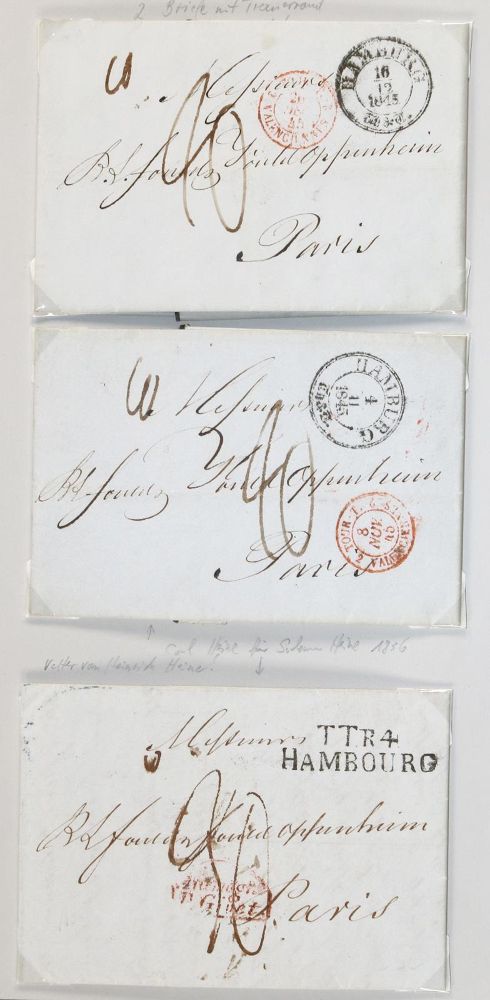 2 Briefe mit Trauerrand
Messieurs
HAMBURG
16
12
1845
VALENCIENNES
B. L. Fould & Fould Oppenheim
Paris
Messieurs
HAMBURG
4
11
1845
B. L. Fould & Fould Oppenheim
TOUR-T.
8
NOV
45
2 VALENCIENNES
Paris
Carl Heine für Salomon Heine 1856
Vetter von Heinrich Heine!
Messieurs
TTR4
HAMBOURG
B L Fould & Fould Oppenheim
Paris